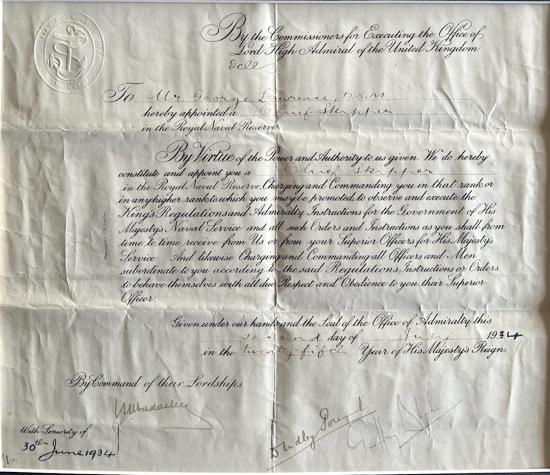 By the Commissioners for Executing the Office of
Lord High Admiral of the United Kingdom
&c &c &c
To Mr. George Lawrence, D.S.M.
hereby appointed a Chief Skipper
in the Royal Naval Reserve
By Virtue of the Power and Authority to us given. We do hereby
constitute and appoint you a Chief Skipper
in the Royal Naval Reserve, Charging and Commanding you in that rank or
in any higher rank to which you may be promoted to observe and execute the
King's Regulations and Admiralty Instructions for the Government of His
Majesty's Naval Service and all such Orders and Instructions as you shall from
time to time receive from Us or from your Superior Officers for His Majesty's
Service. And likewise Charging and Commanding all Officers and Men
subordinate to you according to the said Regulations, Instructions or Orders
to behave themselves with all due Respect and Obedience to you their Superior
Officer.
Given under our hands and the Seal of the Office of Admiralty this
second day of July 1934
in the twenty fifth Year of His Majesty's Reign.
By Command of their Lordships
Dudley Pound
With Seniority of
30th June 1934